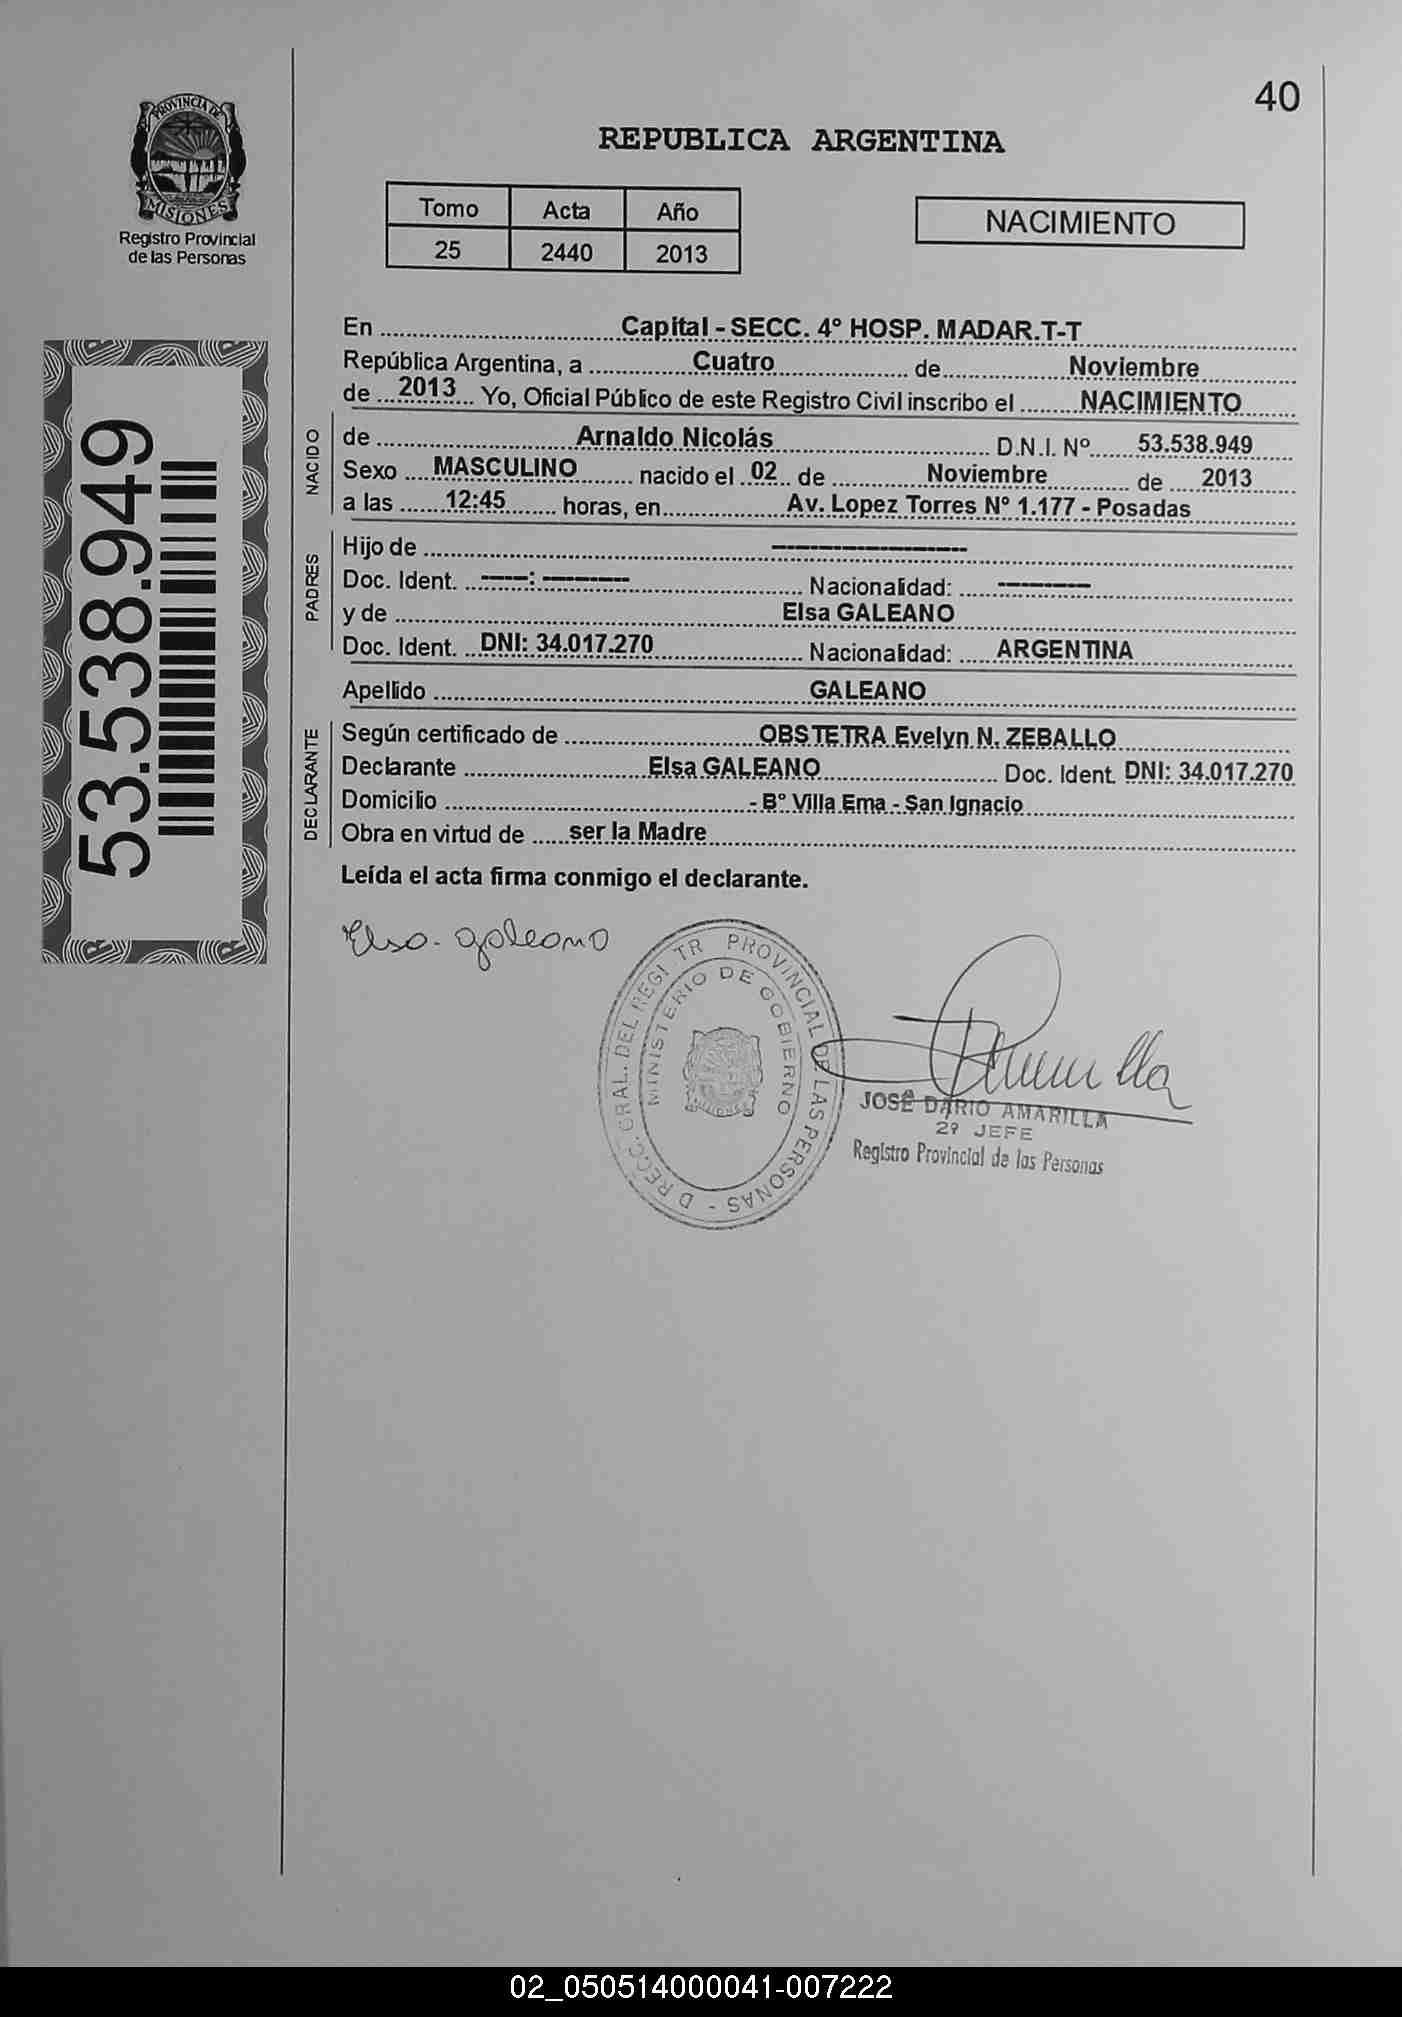 40
PROVINCIA DE
MISIONES
Registro Provincial
de las Personas
REPUBLICA ARGENTINA
Tomo Acta Año
25 2440 2013
NACIMIENTO
53.538.949
En ........ Capital - SECC. 4° HOSP. MADAR.T-T
República Argentina, a ........ Cuatro ........ de ........ Noviembre
de ... 2013 ... Yo, Oficial Público de este Registro Civil inscribo el ........ NACIMIENTO
NACIDO
de ........ Arnaldo Nicolás ........ D.N.I. Nº ...... 53.538.949
Sexo .... MASCULINO ........ nacido el .. 02 .. de ........ Noviembre ........ de .... 2013
a las ...... 12:45 ...... horas, en ........ Av. Lopez Torres Nº 1.177 - Posadas
PADRES
Hijo de ........ ---------------------
Doc. Ident. .. -----: --------- ........ Nacionalidad: ..... ----------
y de ........ Elsa GALEANO
Doc. Ident. .. DNI: 34.017.270 ........ Nacionalidad: ..... ARGENTINA
Apellido ........ GALEANO
DECLARANTE
Según certificado de ........ OBSTETRA Evelyn N. ZEBALLO
Declarante ........ Elsa GALEANO ........ Doc. Ident. DNI: 34.017.270
Domicilio ........ - B° Villa Ema - San Ignacio
Obra en virtud de ..... ser la Madre
Leída el acta firma conmigo el declarante.
Elsa. galeano
D RECC. GRAL. DEL REGI TR PROVINCIAL DE LAS PERSONAS -
MINISTERIO DE GOBIERNO
MISIONES
JOSÉ DARIO AMARILLA
2º JEFE
Registro Provincial de las Personas
02_050514000041-007222